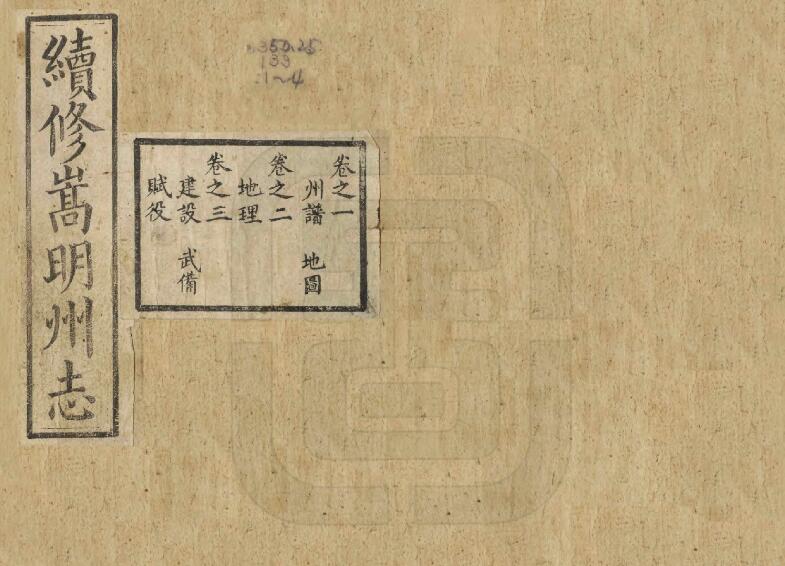 續修嵩明州志
卷之一
州譜 地圖
卷之二
地理
卷之三
建設 武備
賦役
350.25
133
:1~4